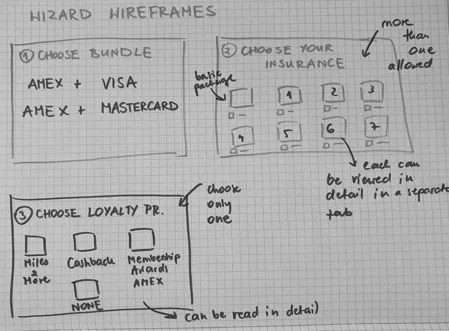 WIZARD WIREFRAMES
① CHOOSE BUNDLE
AMEX + VISA
AMEX + MASTERCARD
② CHOOSE YOUR
INSURANCE
more
than
one
allowed
basic
package
1 2 3
4 5 6 7
each can
be viewed in
detail in a separate
tab
③ CHOOSE LOYALTY PR.
choose
only
one
Miles
&
More
Cashback
Membership
Awards
AMEX
NONE
can be read in detail